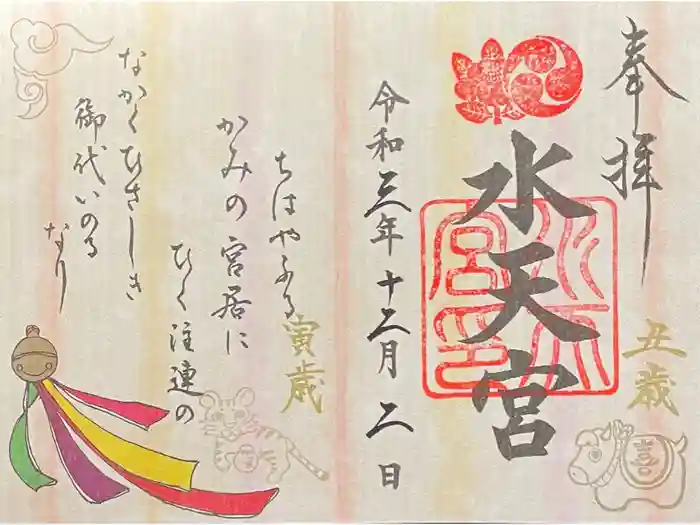 奉拝
丑歳
水天宮
令和三年十二月二日
ちはやふる
かみの宮居に
ひく注連の
なかくひさしき
御代いのる
なり
寅歳